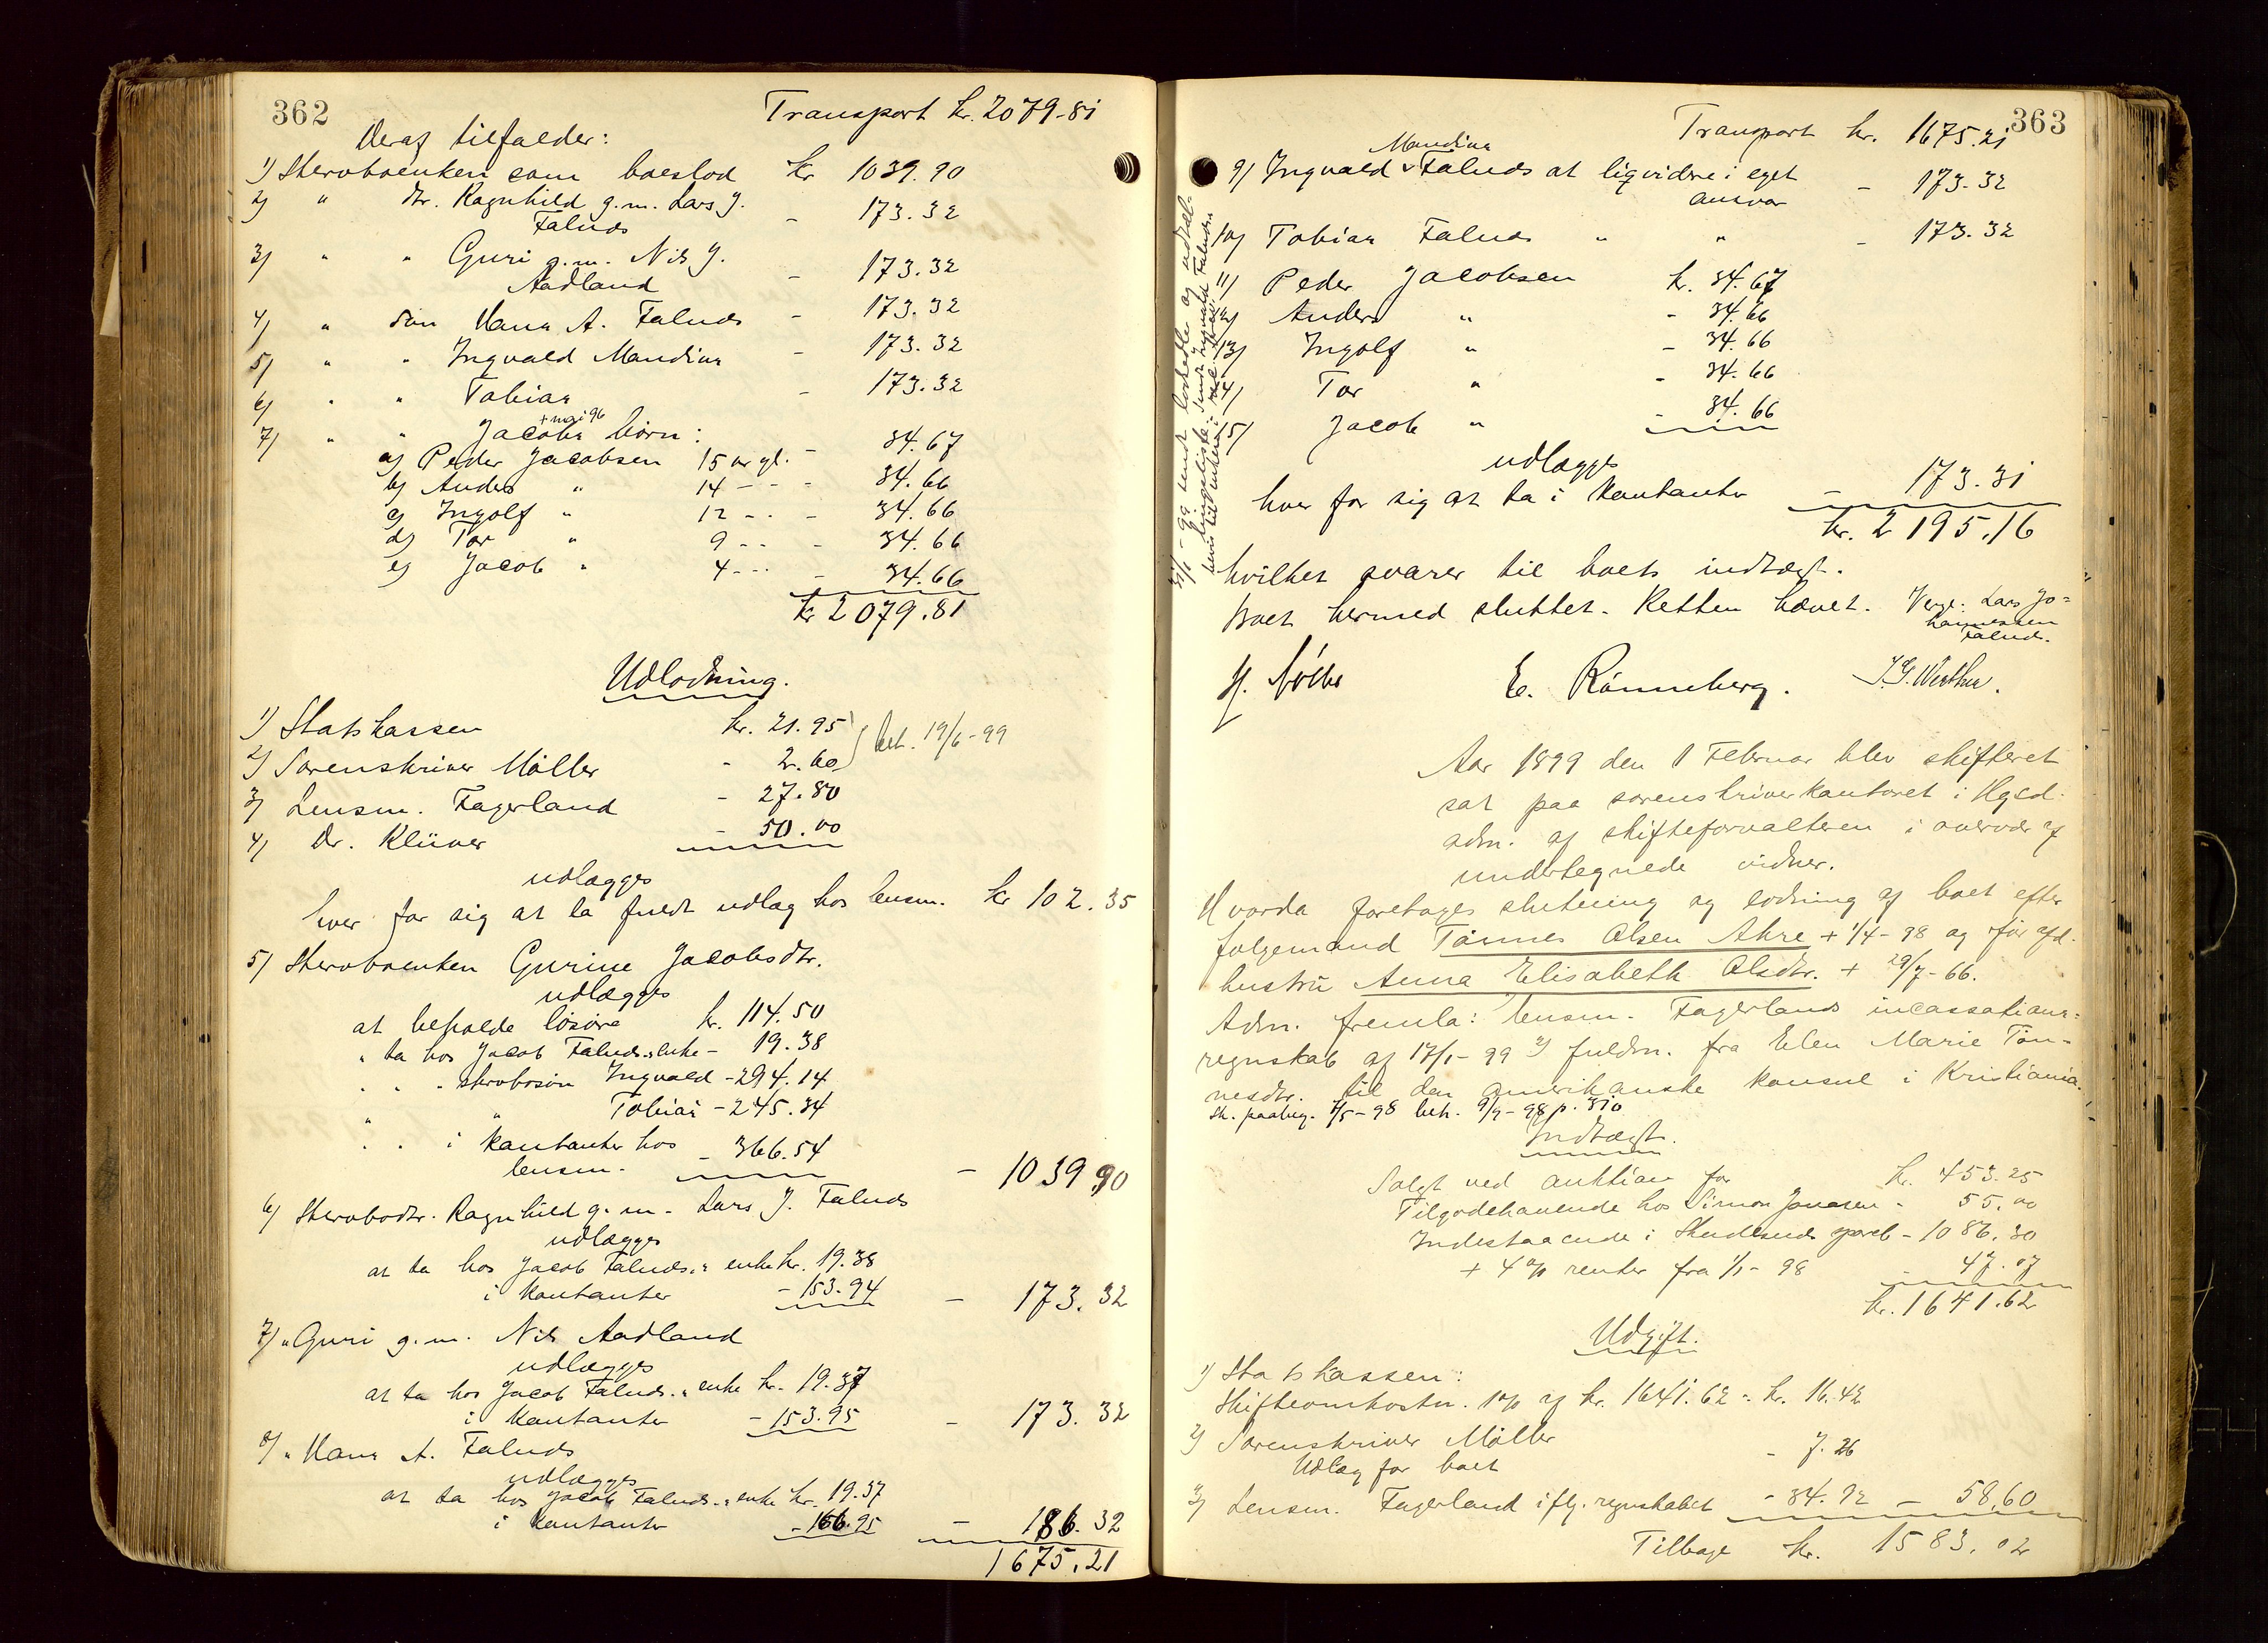 362
Transport kr. 2079-81
Heraf tilfalder:
1) Stervboenken som boeslod kr 1039.90
2) " dtr. Ragnhild g.m. Lars J.
Falnds - 173.32
3) " " Guri g.m. Nils J.
Aadland - 173.32
4) " søn Hans A. Falnds - 173.32
5) " " Ingvald Mandius - 173.32
6) " " Tobias - 173.32
+ mai 96
7) " " Jacobs børn:
a) Peder Jacobsen 15 år gl. - 34.67
b) Anders " 14 - - - 34.66
c) Ingolf " 12 - - - 34.66
d) Tor " 9 - - - 34.66
e) Jacob " 4 - - - 34.66
kr 2079.81
Udlodning.
1) Statskassen kr. 21.95
2) Sorenskriver Møller - 2.60
bet. 19/6-99
3) Lensm. Fagerland - 27.80
4) Dr. Klüver - 50.00
udlægges
hver for sig at ta fuldt udlæg hos lensm. kr 102.35
5) Stervboenken Gurine Jacobsdtr.
udlægges
at beholde løsøre kr. 114.50
" ta hos Jacob Falnds.s enke - 19.38
" " - stervbosøn Ingvald - 294.14
" " Tobias - 245.34
" " i kontanter hos
lensm. - 366.54 - 1039.90
6) Stervbodtr. Ragnhild g.m. Lars J. Falnds
udlægges
at ta hos Jacob Falnds.s enke kr. 19.38
i kontanter - 153.94 - 173.32
7) " Guri g.m. Nils Aadland
udlægges
at ta hos Jacob Falnds.s enke kr. 19.37
i kontanter - 153.95 - 173.32
8) " Hans A. Falnds
udlægges
at ta hos Jacob Falnds.s enke kr. 19.37
i kontanter - 166.95 - 186.32
1675.21
363
Transport kr. 1675.21
Mandius
9) Ingvald v Falnds at liqvidere i eget
ansvar - 173.32
10) Tobias Falnds " " - 173.32
11) Peder Jacobsen kr. 34.67
12) Anders " - 34.66
13) Ingolf " - 34.66
14) Tor " - 34.66
15) Jacob " - 34.66
udlægges
hver for sig at ta i kontanter - 173.31
kr. 2195.16
hvilket svarer til boets indtægt.
Boet hermed sluttet. Retten hævet. Verge: Lars Jo=
hannessen
Falnds.
H. Møller E. Rønneberg. J.G. Werther.
Aar 1899 den 1 Februar blev skifteret
sat paa sorenskriverkontoret i Hgsd.
adm. af skifteforvalteren i overvær af
undertegnede vidner.
Hvorda foretoges slutning og lodning af boet efter
folgemand Tønnes Olsen Ahre + 1/4-98 og før afd.
hustru Anna Elisabeth Olsdtr. + 29/7-66.
Adm. fremla: 1) lensm. Fagerlands incassations=
regnskab af 17/1-99 2) fuldm. fra Elen Marie Tøn-
nesdtr. til den amerikanske konsul i Kristiania.
Sk. paabeg. 7/5-98 bek. 9/9-98 p. 310
Indtægt.
Solgt ved auktion for kr. 453.25
Tilgodehavende hos Simon Jonasen - 55.00
Indestaaende i Skudesnes spareb - 1086.30
+ 4 % renter fra 1/1-98 - 47.07
kr. 1641.62
Udgift.
1) Statskassen:
Skifteomkostn. 1% af kr. 1641.62 = kr. 16.42
2) Sorenskriver Møller
Udlæg for boet - 7.26
3) Lensm. Fagerland iflg. regnskabet - 34.92 - 58.60
Tilbage kr. 1583.02